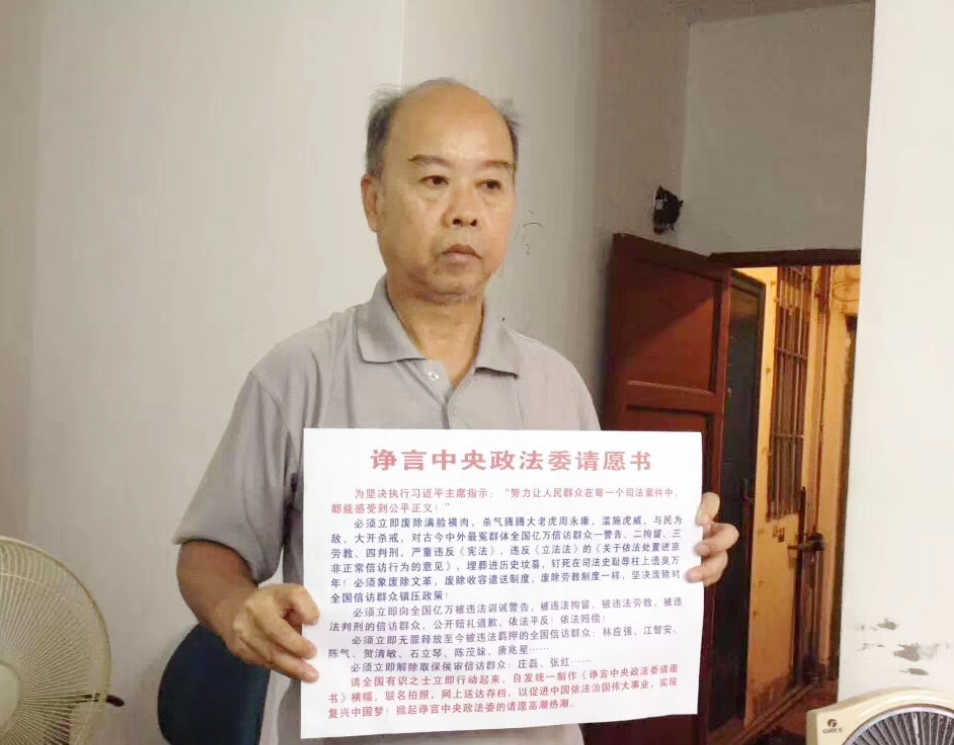 诤言中央政法委请愿书
为坚决执行习近平主席指示：“努力让人民群众在每一个司法案件中，
都能感受到公平正义！”
必须立即废除满脸横肉，杀气腾腾大老虎周永康，滥施虎威，与民为
敌，大开杀戒，对古今中外最冤群体全国亿万信访群众一警告、二拘留、三
劳教、四判刑，严重违反《宪法》，违反《立法法》的《关于依法处置进京
非正常信访行为的意见》，埋葬进历史坟墓，钉死在司法史耻辱柱上遗臭万
年！必须象废除文革，废除收容遣送制度，废除劳教制度一样，坚决废除对
全国信访群众镇压政策！
必须立即向全国亿万被违法训诫警告，被违法拘留、被违法劳教、被违
法判刑的信访群众，公开赔礼道歉，依法平反！依法赔偿！
必须立即无罪释放至今被违法羁押的全国信访群众：林应强、江智安、
陈气、贺清敏、石立琴、陈茂妹、唐兆星……
必须立即解除取保候审信访群众：庄磊、张红……
请全国有识之士立即行动起来，自发统一制作《诤言中央政法委请愿
书》横幅，联名拍照，网上送达存档，以促进中国依法治国伟大事业，实现
复兴中国梦！掀起诤言中央政法委的请愿高潮热潮。
GREE